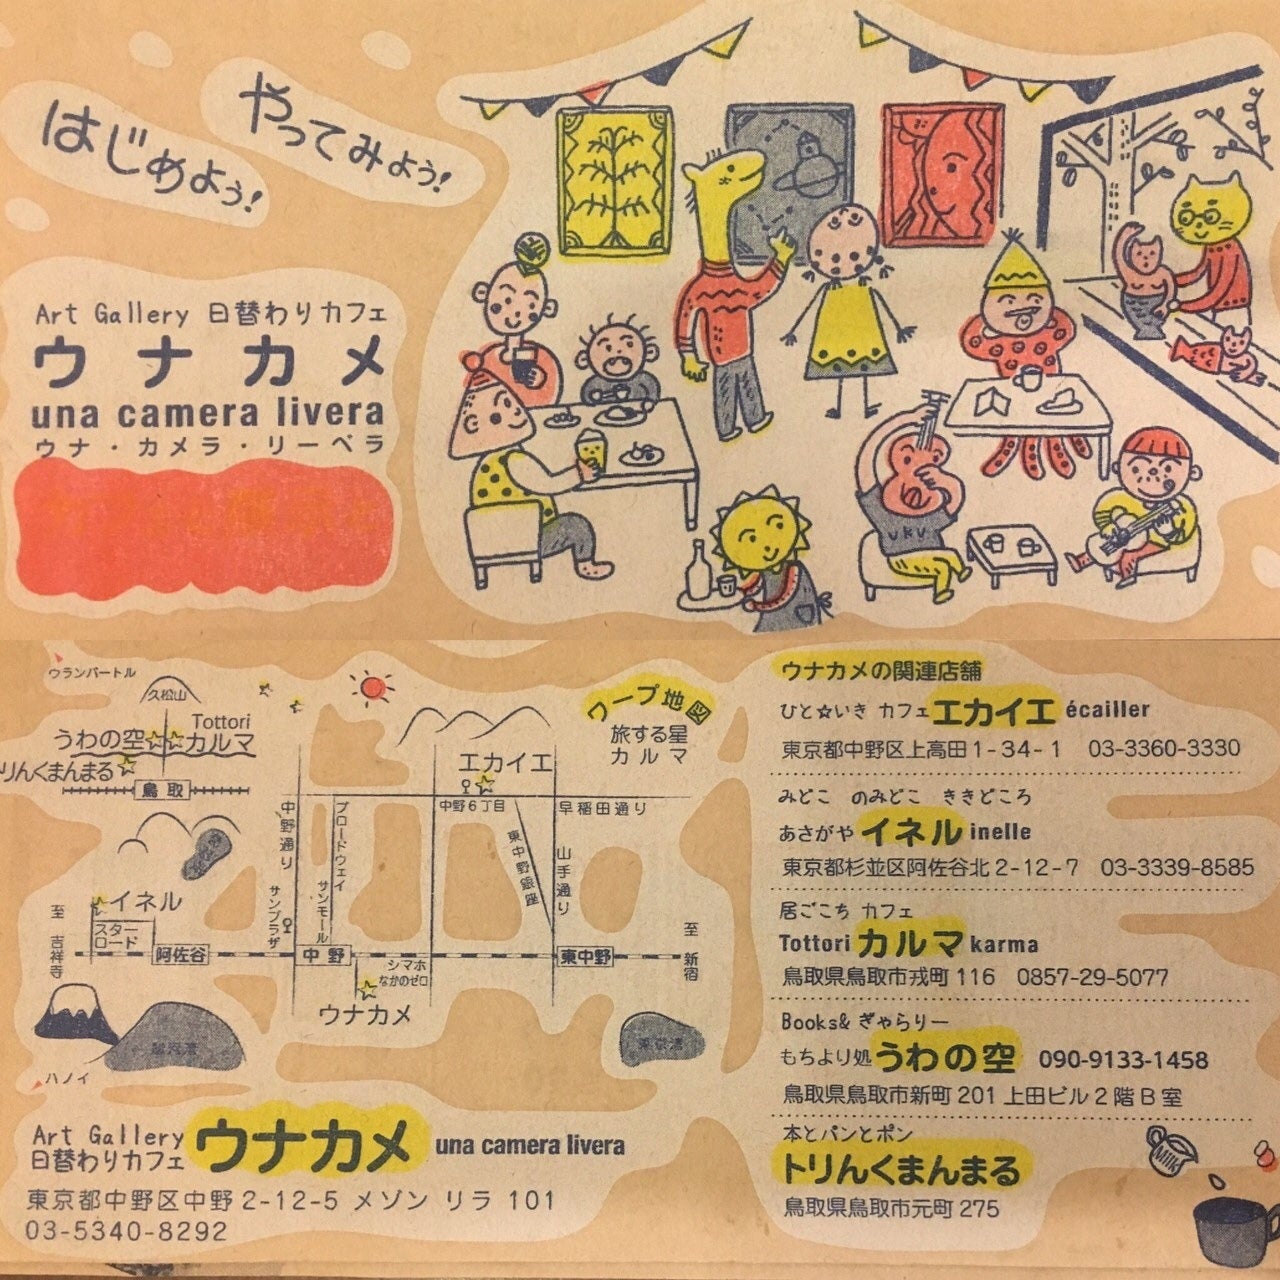 はじめよう!
やってみよう!
Art Gallery 日替わりカフェ
ウナカメ
una camera livera
ウナ・カメラ・リーベラ
UKU
ウランバートル
久松山
Tottori
うわの空
カルマ
りんくまんまる
鳥取
ワープ地図
旅する星
カルマ
エカイエ
中野6丁目
早稲田通り
中野通り
ブロードウェイ
サンモール
サンプラザ
東中野銀座
山手通り
イネル
スター
ロード
至 吉祥寺
阿佐谷
中野
東中野
至 新宿
シマホ
なかのゼロ
ウナカメ
駿河湾
東京湾
ハノイ
Art Gallery
日替わりカフェ
ウナカメ una camera livera
東京都中野区中野2-12-5 メゾン リラ 101
03-5340-8292
ウナカメの関連店舗
ひと☆いき カフェ エカイエ écailler
東京都中野区上高田1-34-1 03-3360-3330
みどこ のみどこ ききどころ
あさがや イネル inelle
東京都杉並区阿佐谷北2-12-7 03-3339-8585
居ごこち カフェ
Tottori カルマ karma
鳥取県鳥取市戎町116 0857-29-5077
Books& ぎゃらりー
もちより処 うわの空 090-9133-1458
鳥取県鳥取市新町201 上田ビル2階B室
本とパンとポン
トリんくまんまる
鳥取県鳥取市元町275
MILK